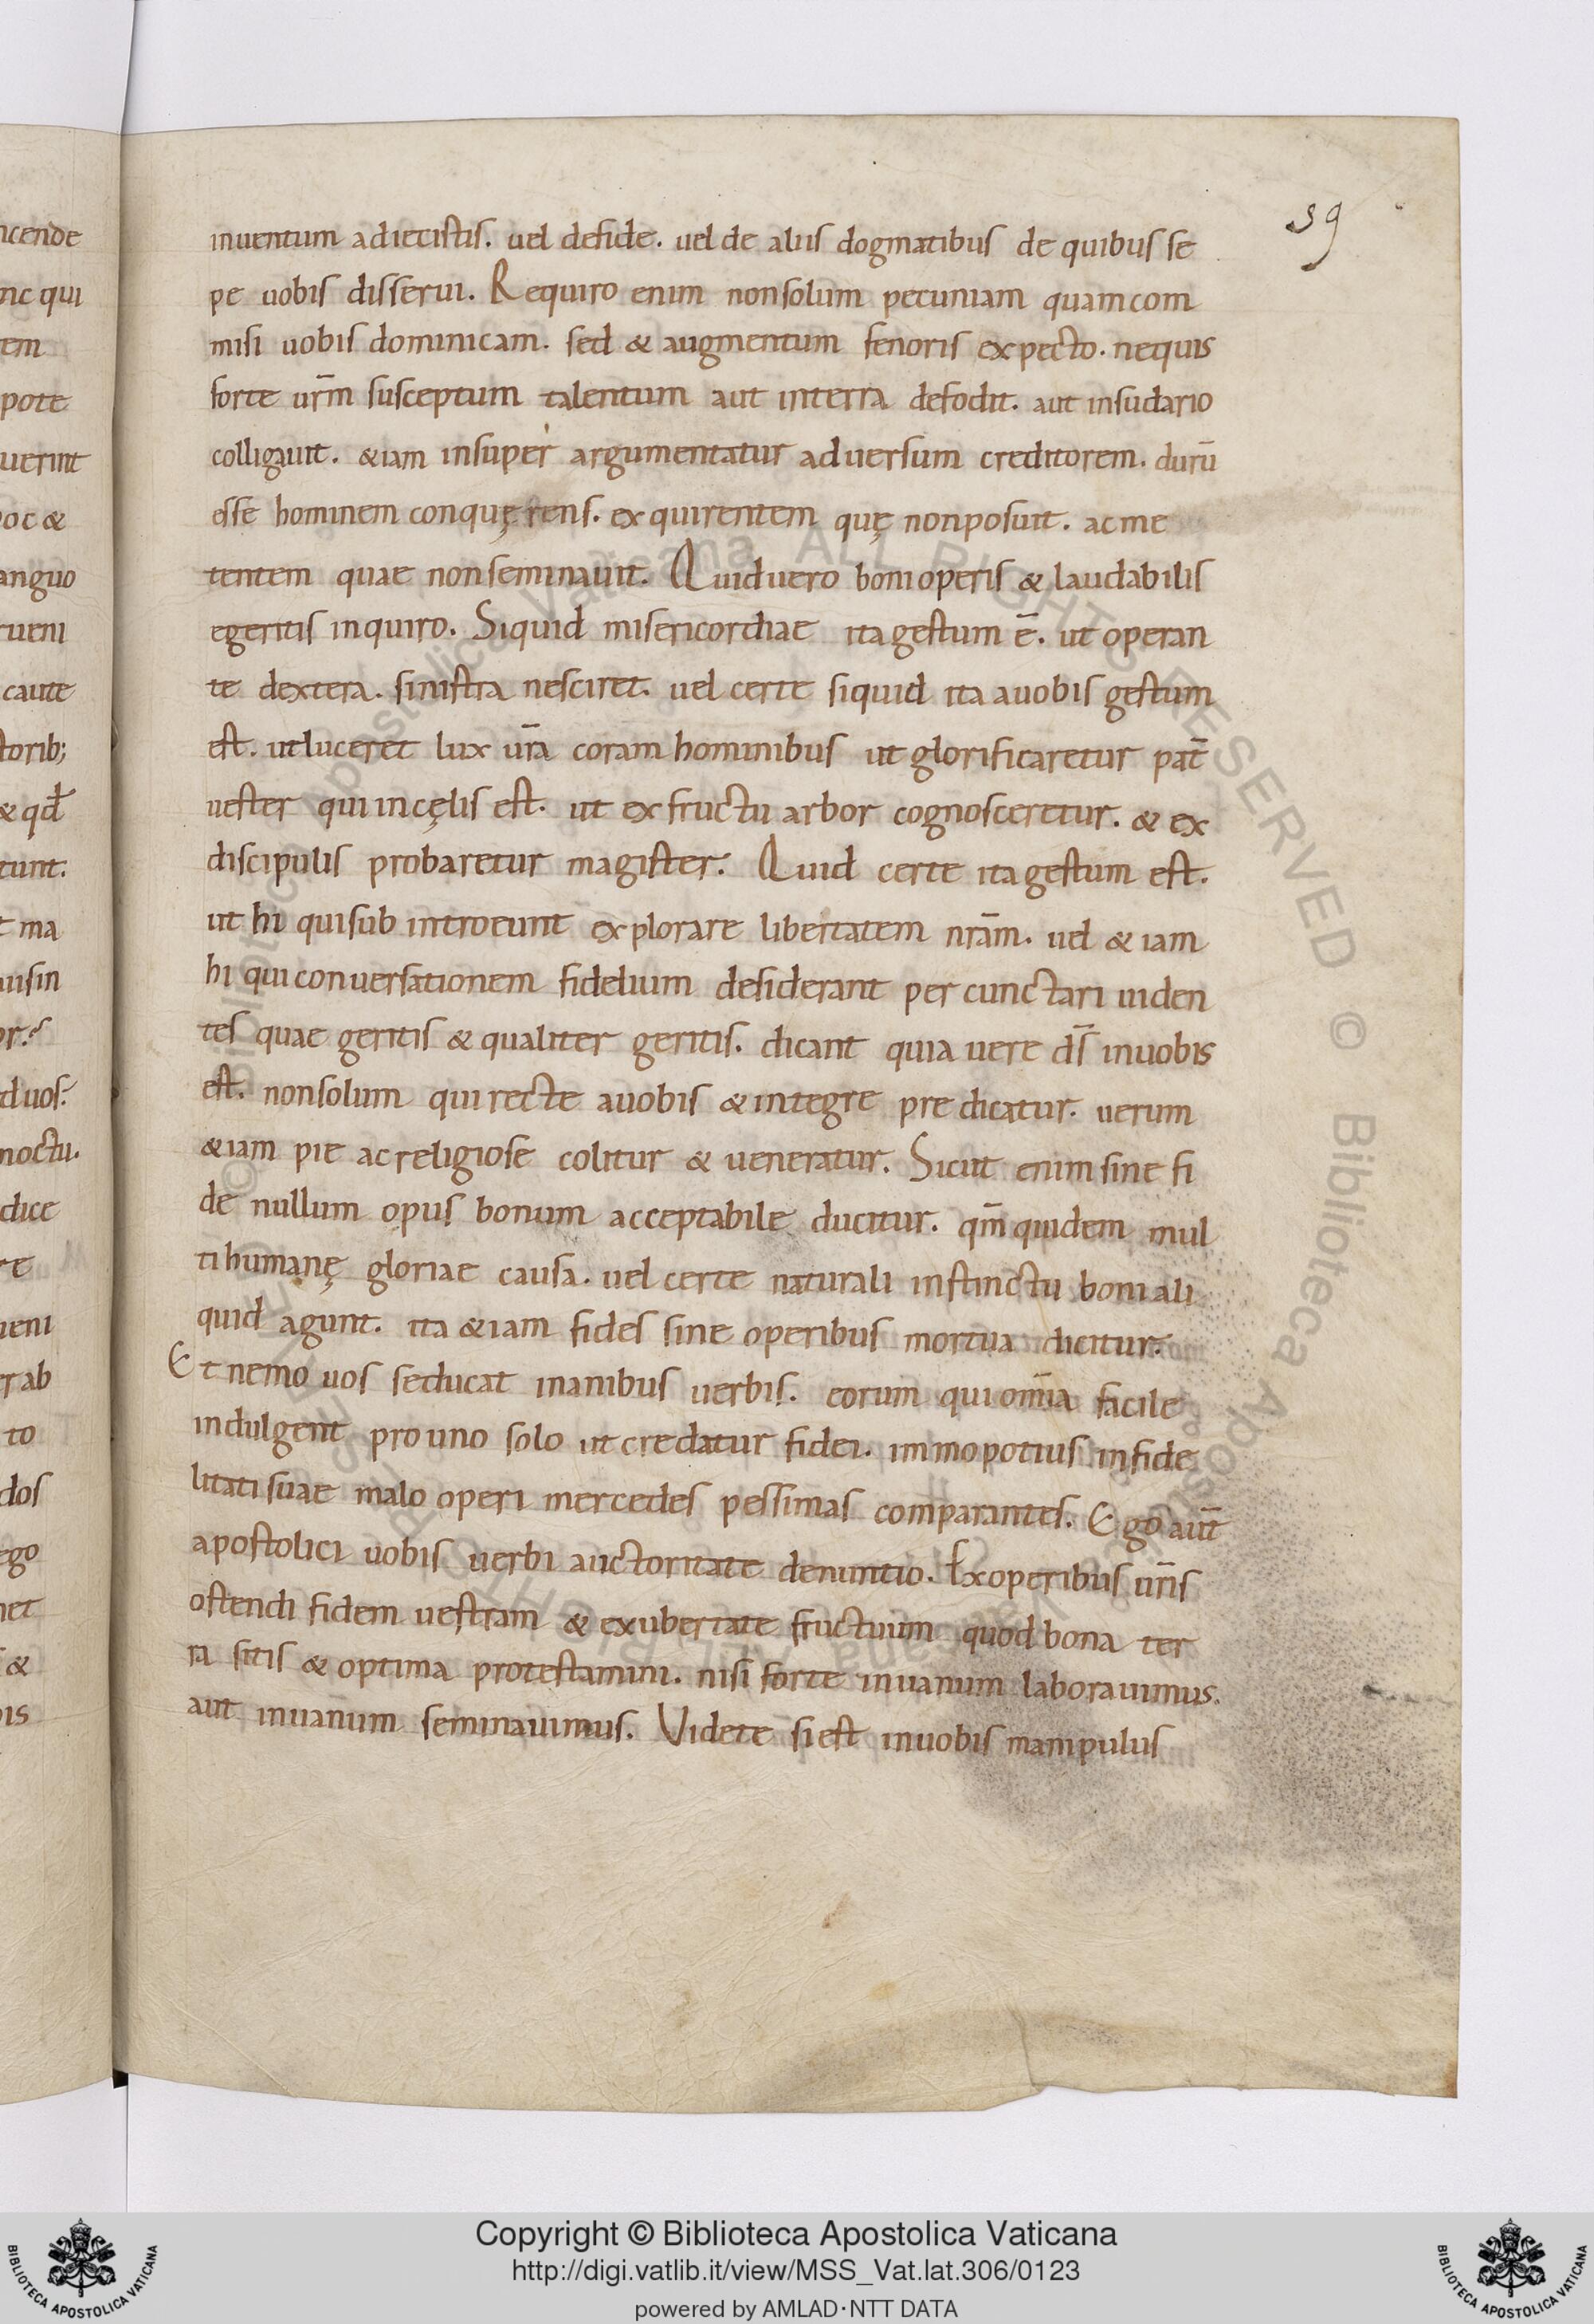 39
inuentum adiecistis. uel defide. uel de aliis dogmatibus de quibus se
pe uobis disserui. Requiro enim nonsolum pecuniam quamcom
misi uobis dominicam. sed & augmentum fenoris expecto. nequis
forte ur̅m susceptum talentum aut interra defodit. aut insudario
colligauit. &iam insuper argumentatur aduersum creditorem. durū
esse hominem conquęrens. exquirentem quę nonposuit. acme
tentem quae nonseminauit. Quiduero boni operis & laudabilis
egeritis inquiro. Siquid misericordiae itagestum ē. ut operan
te dextera. sinistra nesciret. uel certe siquid ita auobis gestum
est. utluceret lux ur̅a coram hominibus ut glorificaretur pat̅
uester qui incęlis est. ut exfructu arbor cognosceretur. & ex
discipulis probaretur magister. Quid certe itagestum est.
ut hi quisub introeunt explorare libertatem nr̅am. uel &iam
hi qui conuersationem fidelium desiderant percunctari uiden
tes quae geritis & qualiter geritis. dicant quia uere ds̅ inuobis
est. nonsolum qui recte auobis & integre predicatur. uerum
&iam pie acreligiose colitur & ueneratur. Sicut enim sine fi
de nullum opus bonum acceptabile ducitur. qm̅ quidem mul
ti humanę gloriae causa. uel certe naturali instinctu boni ali
quid agunt. ita &iam fides sine operibus mortua dicitur.
Et nemo uos seducat inanibus uerbis. eorum qui om̅ia facile
indulgent prouno solo ut credatur fidei. immopotius infide
litati suae malo operi mercedes pessimas comparantes. Ego aut̅
apostolici uobis uerbi auctoritate denuntio. Exoperibus ur̅is
ostendi fidem uestram & exubertate fructuum quod bona ter
ra sitis & optima protestamini. nisi forte inuanum laborauimus.
aut inuanum seminauimus. Videte siest inuobis manipulus
ncende
nc qui
tem
pote
uerint
oc &
anguo
rueni
caute
torib;
& qđ
tunt.
t ma
uisin
or.
duos.
noctu.
dice
re
ueni
r ab
to
dos
ego
net
&
is
© Biblioteca Apostolica Vaticana ALL RIGHTS RESERVED © Biblioteca Apostolica Vaticana ALL RIGHTS RESERVED
Copyright © Biblioteca Apostolica Vaticana
http://digi.vatlib.it/view/MSS_Vat.lat.306/0123
powered by AMLAD·NTT DATA
BIBLIOTECA APOSTOLICA VATICANA
BIBLIOTECA APOSTOLICA VATICANA